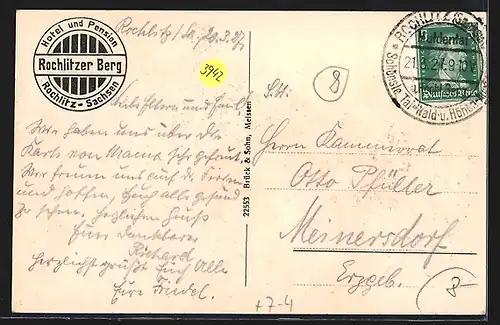 Hotel und Pension
Rochlitzer Berg
Rochlitz - Sachsen
Rochlitz / Sa., 20.3.27
3942
8
ROCHLITZ (SACHSEN)
Muldental
21. 3.27.-9-10
Schönste Tal-, Wald- u. Höhen
Deutsches Reich
Liebe Eltern und
Wir haben uns über die
Karte von Mama sehr gefreut.
Wir freuen uns auf die Ferien
und hoffen, Euch alle gesund
zu sehen, herzlichen Gruß
Euer dankbarer
Richard
Herzlichst grüßt Euch Alle
Eure Friedel.
22553 Brück & Sohn, Meissen
S. H.
Herrn Kommerzrat
Otto Pfüller
Meinersdorf
Erzgeb.
8
+7-4